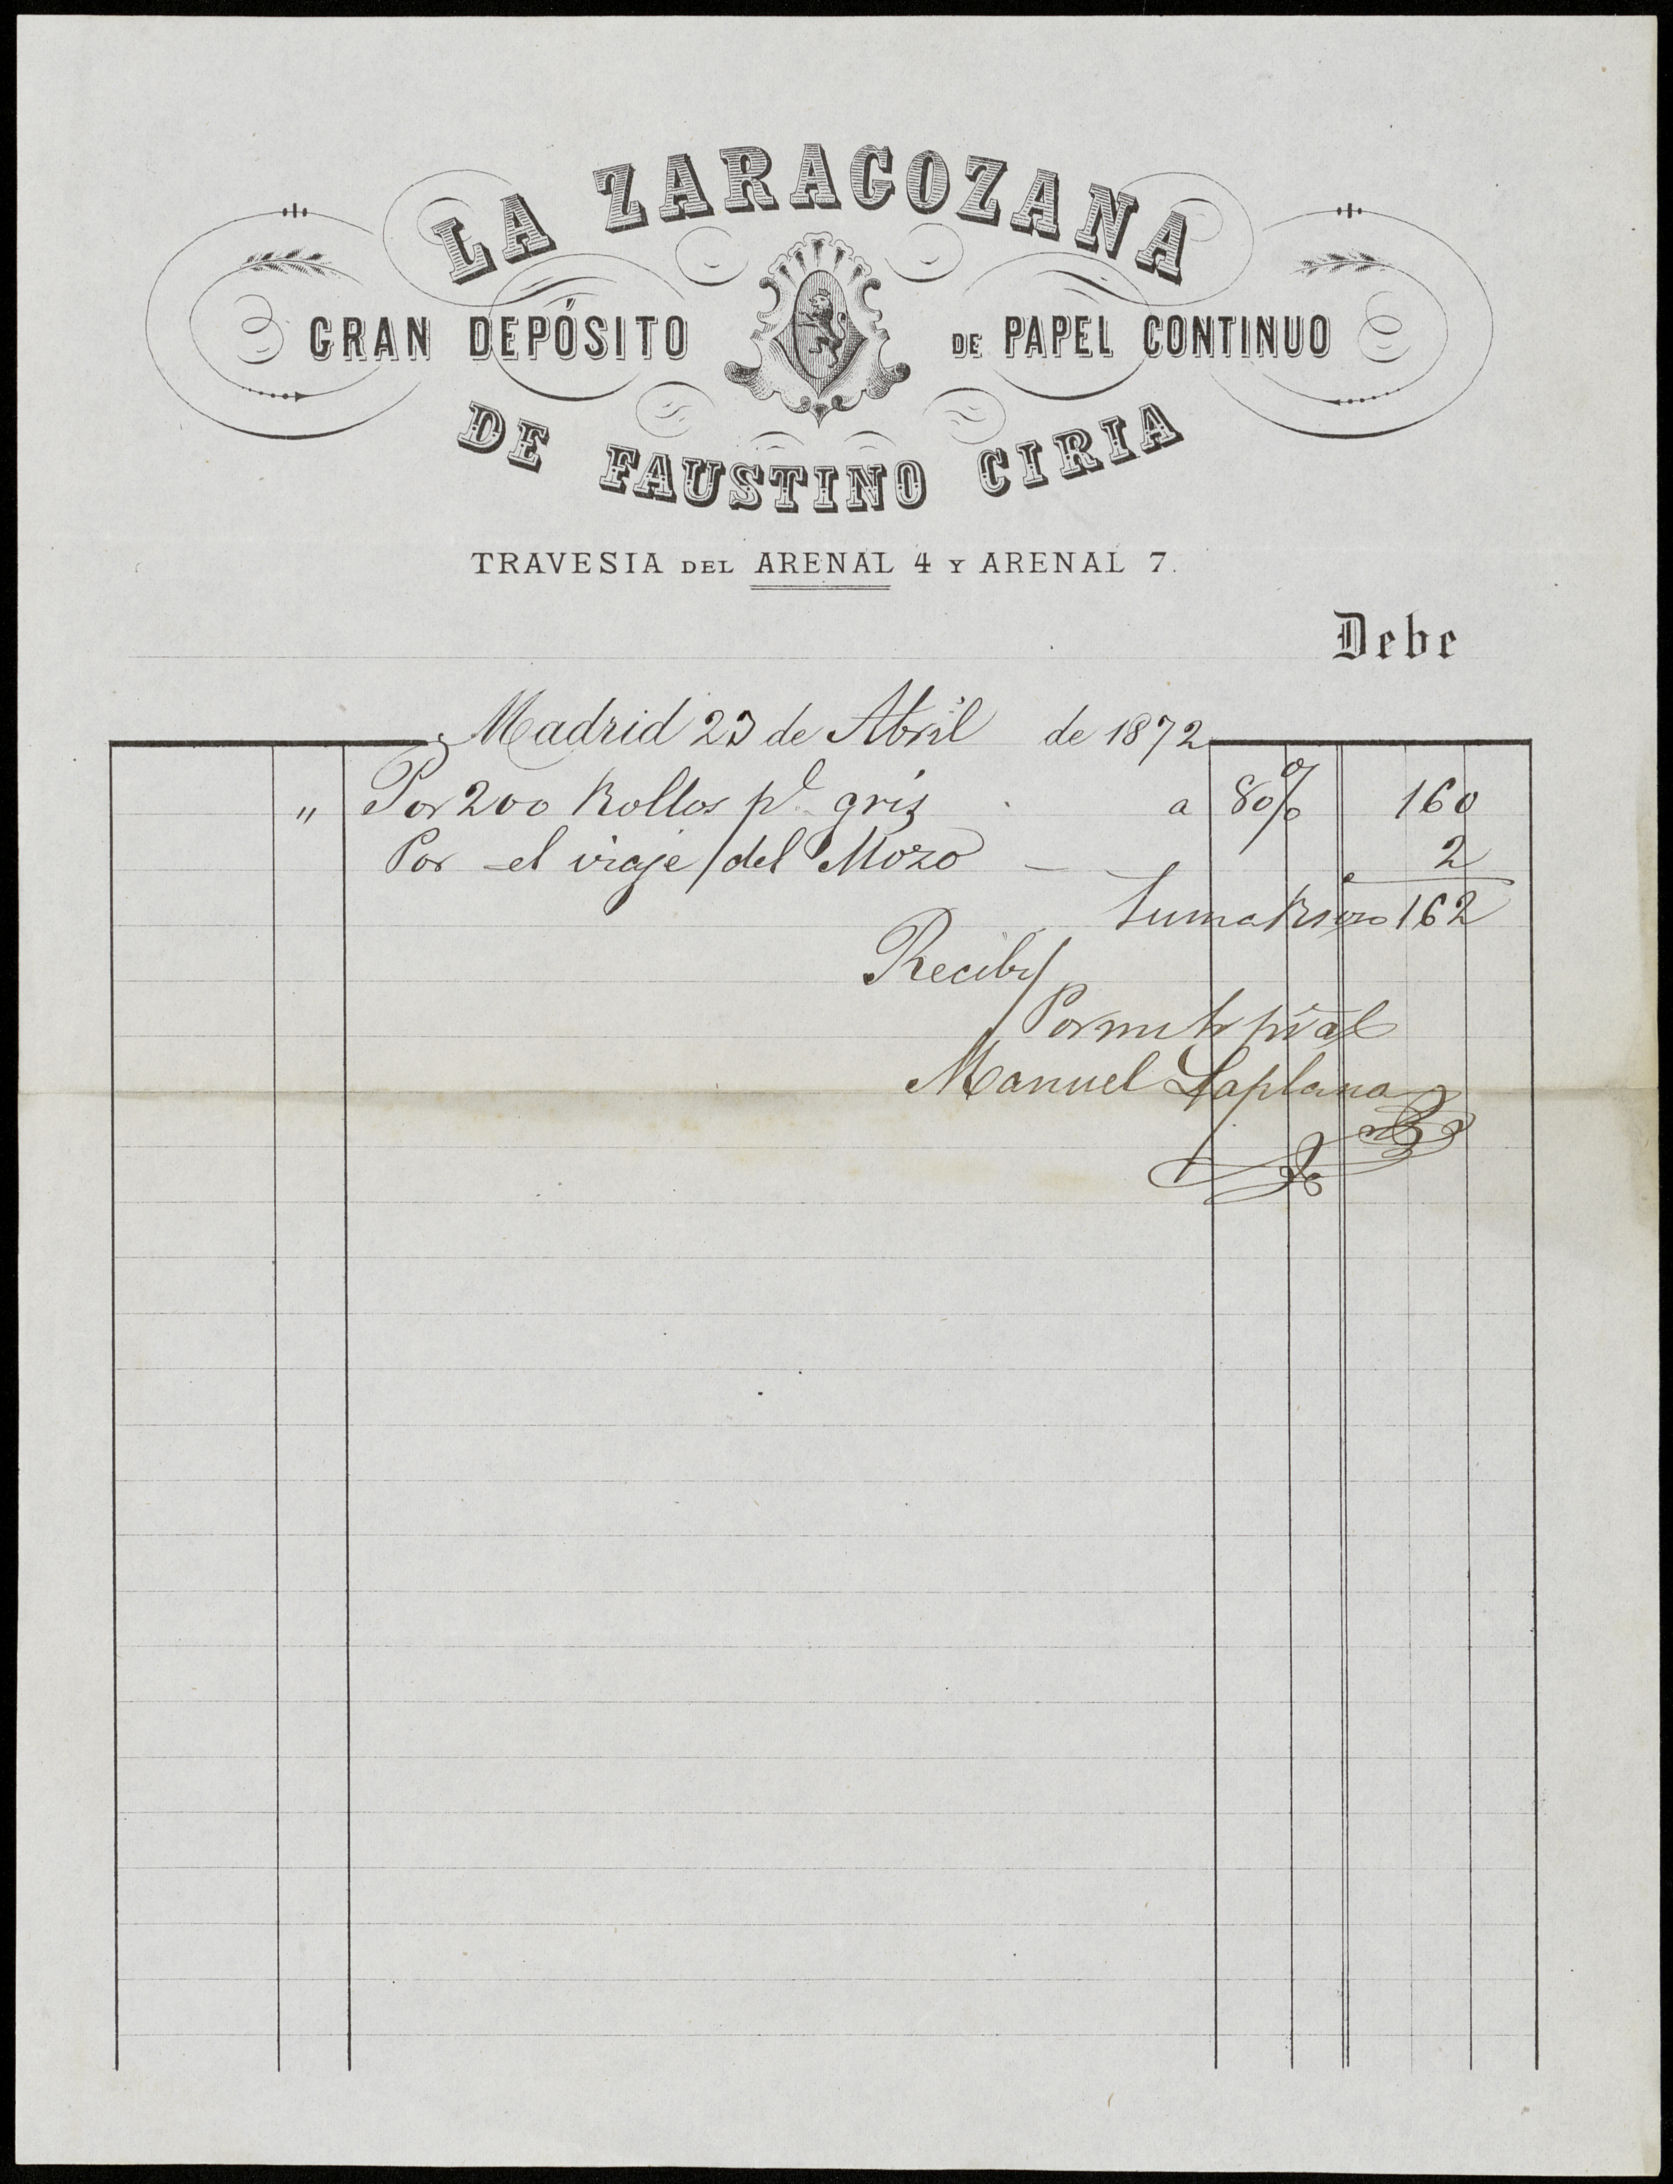 LA ZARAGOZANA
GRAN DEPÓSITO DE PAPEL CONTINUO
DE FAUSTINO CIRIA
TRAVESIA DEL ARENAL 4 Y ARENAL 7.
Debe
Madrid 23 de Abril de 1872
" Por 200 Rollos pl gris a 80 % 160
Por el viaje del Mozo — 2
Suma Rsvon 162
Recibi
Por mi pral
Manuel Laplana